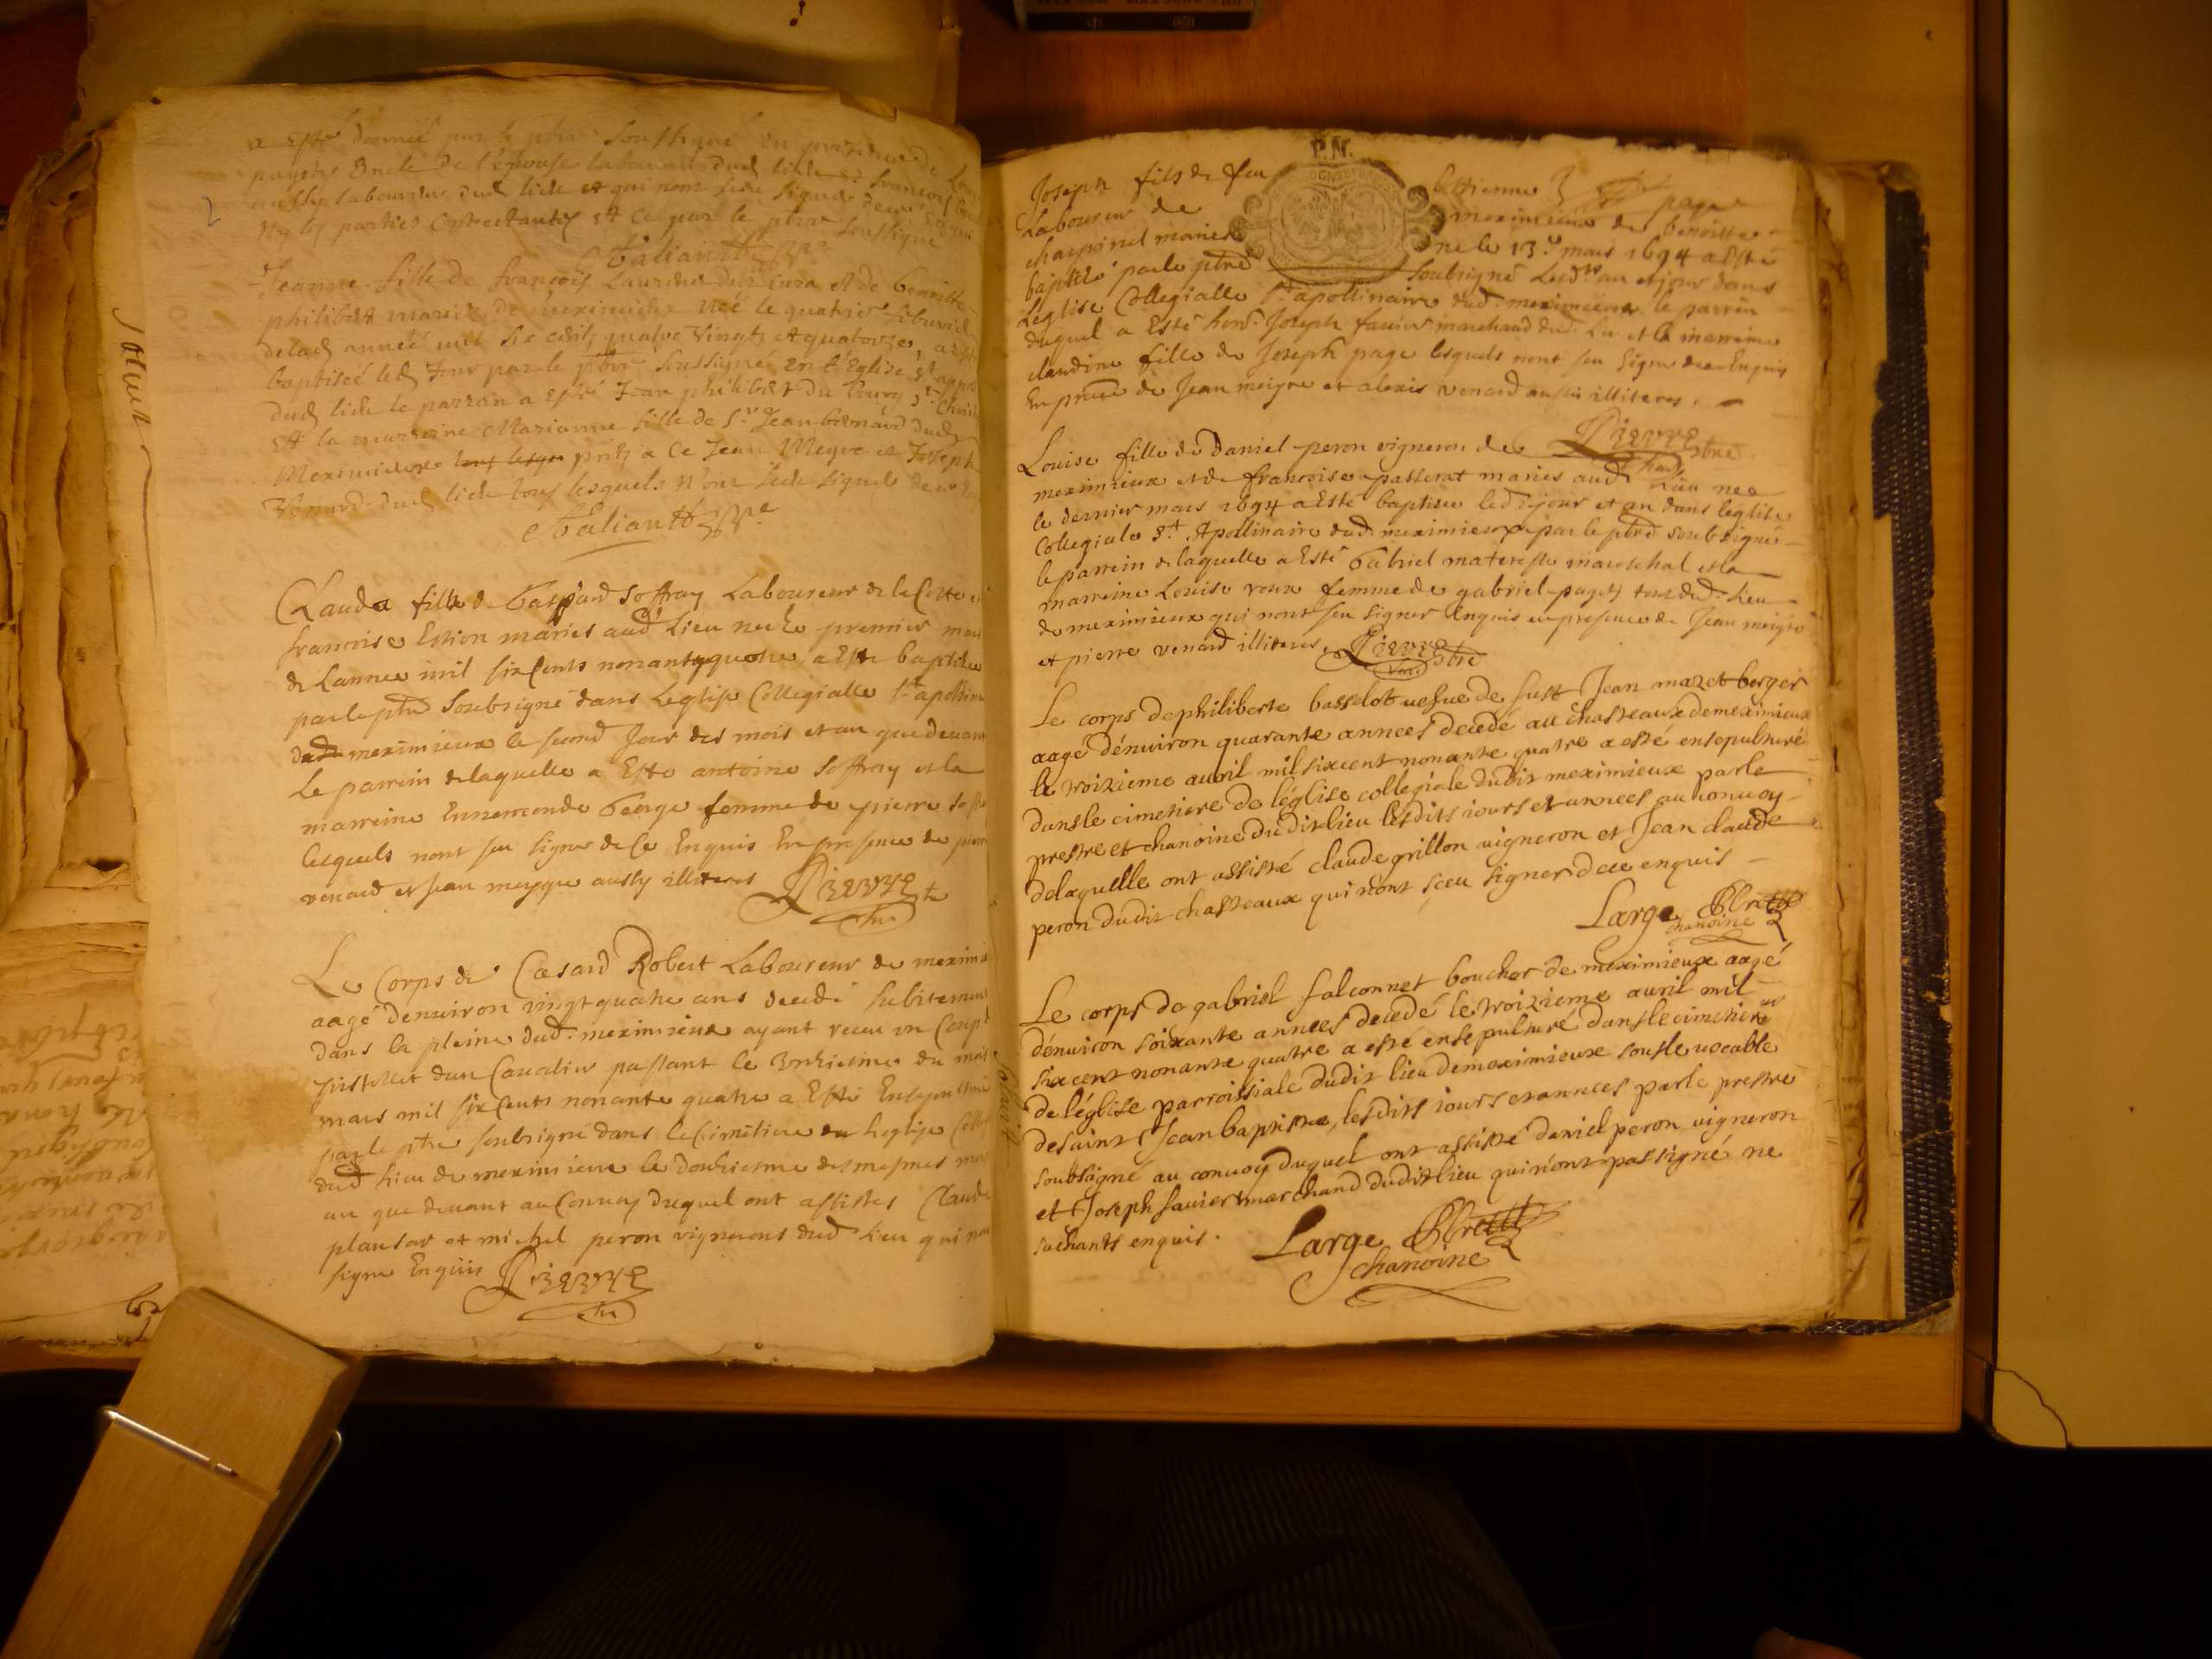 a esté donnée par le pbre soussigné En presence de
payets oncle de l'epouse laboureur dud lieu et francois
aussy laboureur dud lieu et qui nont sceu signer de ce Enquis
Ny les parties Contractantes Et Ce par le pbre soussigné
Taliantt pbre
Jeanne fille de francois Laurens dud et de benoitte
philibert mariéz de meximieux née le quatrie febvrier
delad année mil six cents quatre vingts et quatorze, a esté
baptiséé led Jour par le pbre soussigné En l'Eglise st appol
dud lieu le parrain a esté Jean philibert du bourg st Chris
Et la marraine Marianne fille de Sr Jean bernard dud
Meximieux pnts a Ce Jean Meyre et Joseph
Venard dud lieu tous lesquels N'ont sceu signer de ce
Taliantt pbre
Clauda fille de Gaspard Soffray Laboureur de la Coste et
francoise Estion mariés aud Lieu née le premier mars
de Lannee mil six Cents nonante quatre a Este baptisée
par le ptre Soubsigné dans Leglise Collegialle st apollin
dud meximieux le second Jour des mois et an que devant
Le parrein de laquelle a Esté antoine Soffray et la
marreine Ennemonde George femme de pierre
lesquels nont seu signer de Ce Enquis En presence de pierre
venard et Jean meygre aussy illiteres Pierre
Le Corps de Cesard Robert Laboureur de meximi
aagé denviron vingt quatre ans decedé subitement
dans la pleine dud. meximieux ayant receu un Coupt
pistollet dun Cavalier passant le Onziesme du mois
mars mil six Cents nonante quatre a Esté Ensepulturé
par le ptre soubsigné dans le Cimetiere de leglise
dud Lieu de meximieux le douziesme des mesmes
an que devant au Convoy duquel ont assistes Claude
plansar et michel peron vignerons dud Lieu qui nont
signe Enquis Pierre
P.N.
Joseph fils de feu Estienne page
Laboureur de meximieux de benoitte
charpinel mariés ne le 13e mars 1694 a Esté
baptisé par le ptre soubsigné Lesdts an et jour dans
Leglise Collegialle st apollinaire dud. meximieux le parrein
duquel a Esté hon. Joseph favier marchand dud. Lieu et la marreine
claudine fille de Joseph page lesquels nont seu signe de ce Enquis
En pnce de Jean meigre et alexis venard aussi illiteres.
Louise fille de Daniel peron vigneron de Pierre ptre
meximieux et de francoise passerat mariés aud Lieu nee
le dernier mars 1694 a Esté baptisee led jour et an dans leglise
Collegiale st Apollinaire dud meximieux par le ptre soubsigné
le parrein de laquelle a Esté Gabriel materesse mareschal et la
marreine Louise roux femme de gabriel pagets tous dud. Lieu
de meximieux qui nont seu signer Enquis en presence de Jean meigre
et pierre venard illiteres. Pierre ptre
Le corps de philiberte basselot vefue de fust Jean mazet berger
aagé dénuiron quarante annees decedé au chasteaux de meximieux
le troizieme auril mil sixcent nonante quatre a esté ensepulturé
dans le cimetiere de léglise collegiale dudit meximieux par le
prestre et chanoine dudit lieu lesdits iours et annees au conuoy
delaquelle ont assisté claude grillon uigneron et Jean claude
peron dudit chasteaux qui n'ont sceu signer de ce enquis
Large
chanoine
Le corps de gabriel falconnet boucher de meximieux aagé
dénuiron soixante annees decedé le troizieme auril mil
sixcent nonante quatre a esté ensepulturé dans le cimetiere
de léglise parroissiale dudit lieu de meximieux sous le uocable
de saint Jean baptiste, lesdits iours et annees par le prestre
soubsigné au conuoy duquel ont assisté daniel peron uigneron
et Joseph fauier marchand dudit lieu qui n'ont pas signé ne
sachants enquis.
Large
chanoine